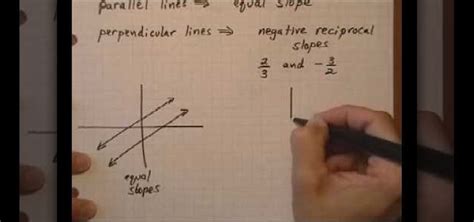 parallel lines ⇒ equal slope
perpendicular lines ⇒ negative reciprocal
slopes
2/3 and -3/2
equal
slopes